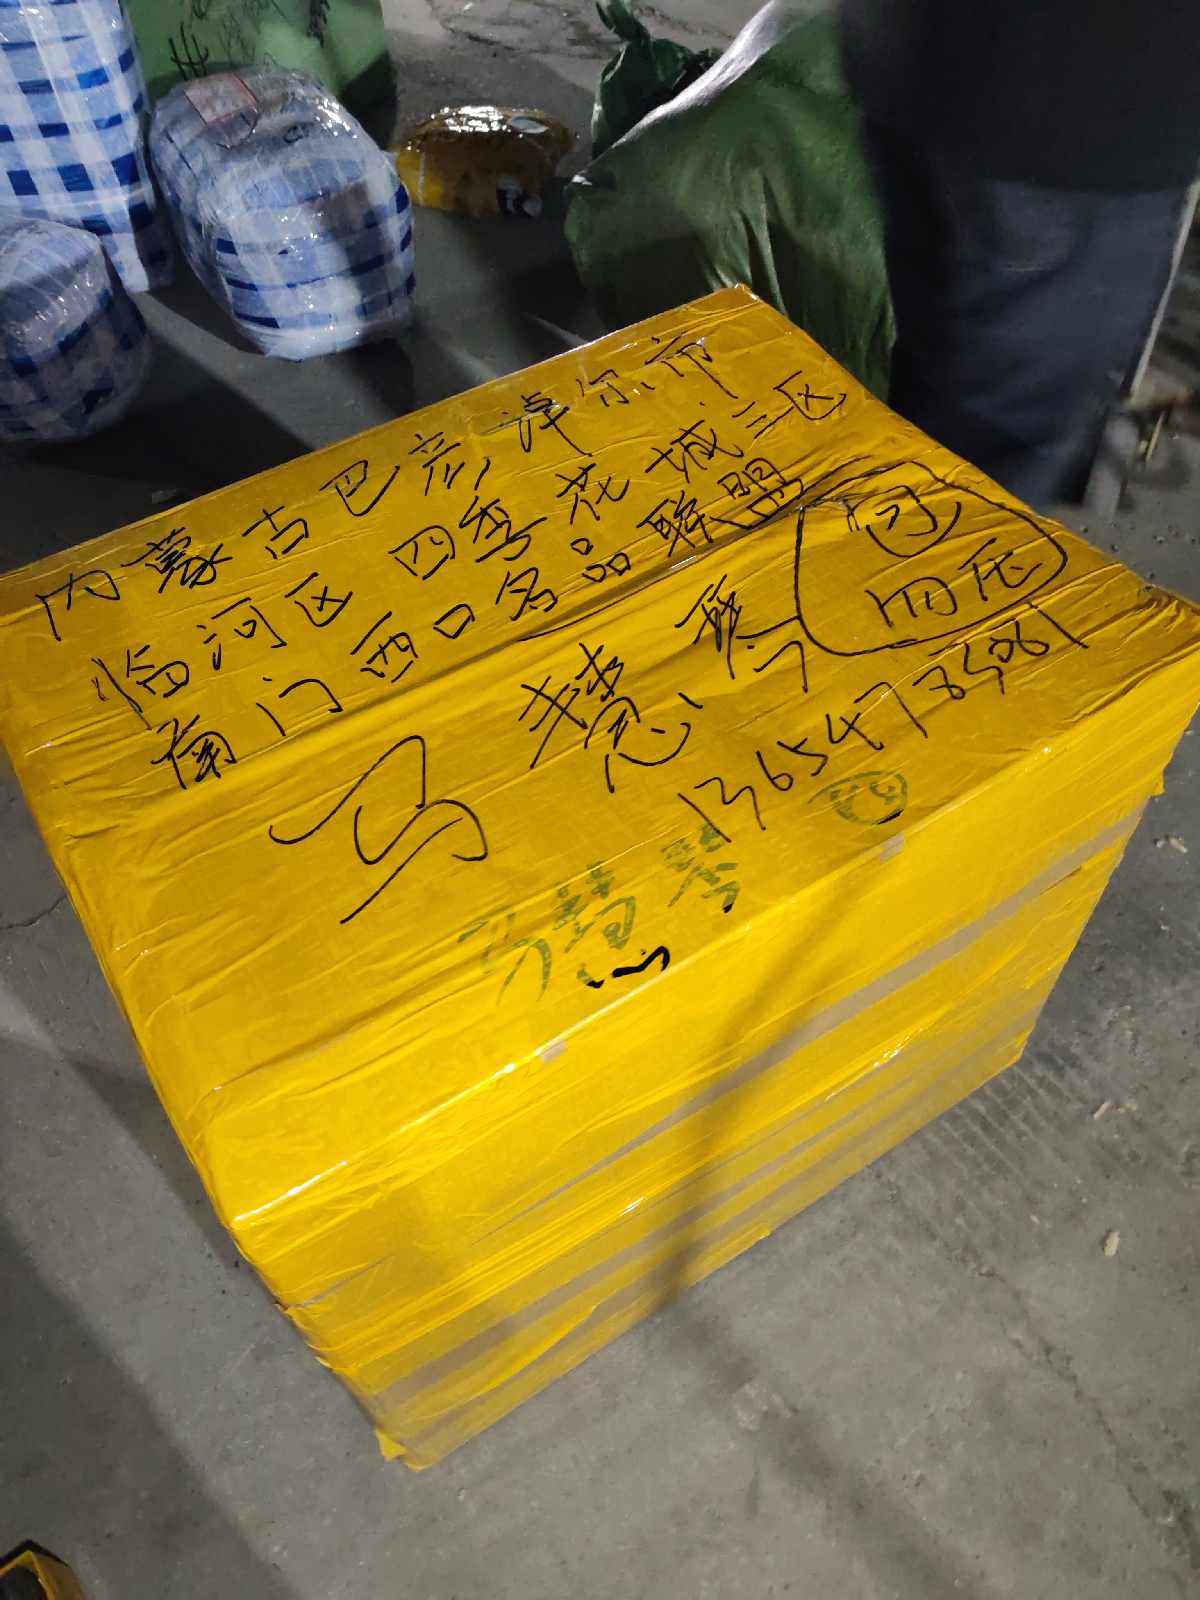 内蒙古巴彦淖尔市
临河区四季花城三区
南门西口名品联盟
马慧琴
13654785061
马慧琴